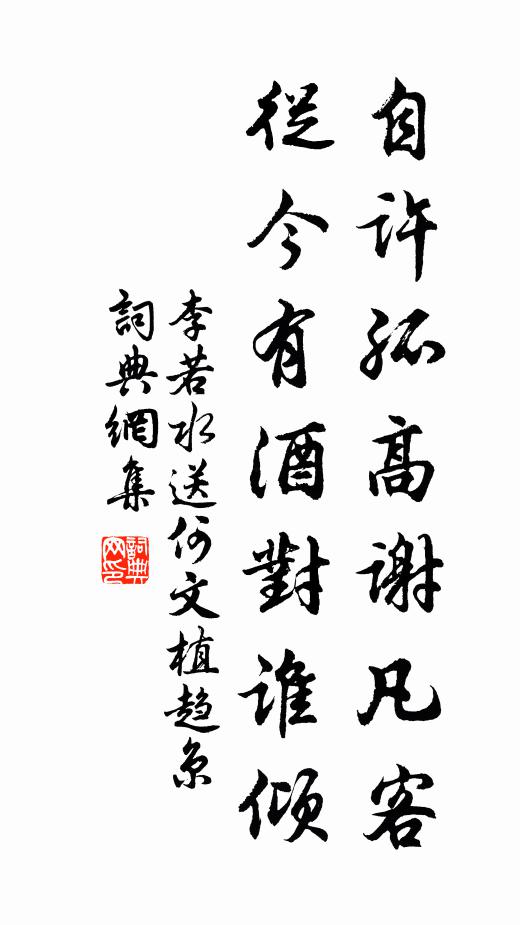 自許孤高謝凡客
從今有酒對誰傾
李若水送何文植趨京
詞典網集
詞典網印